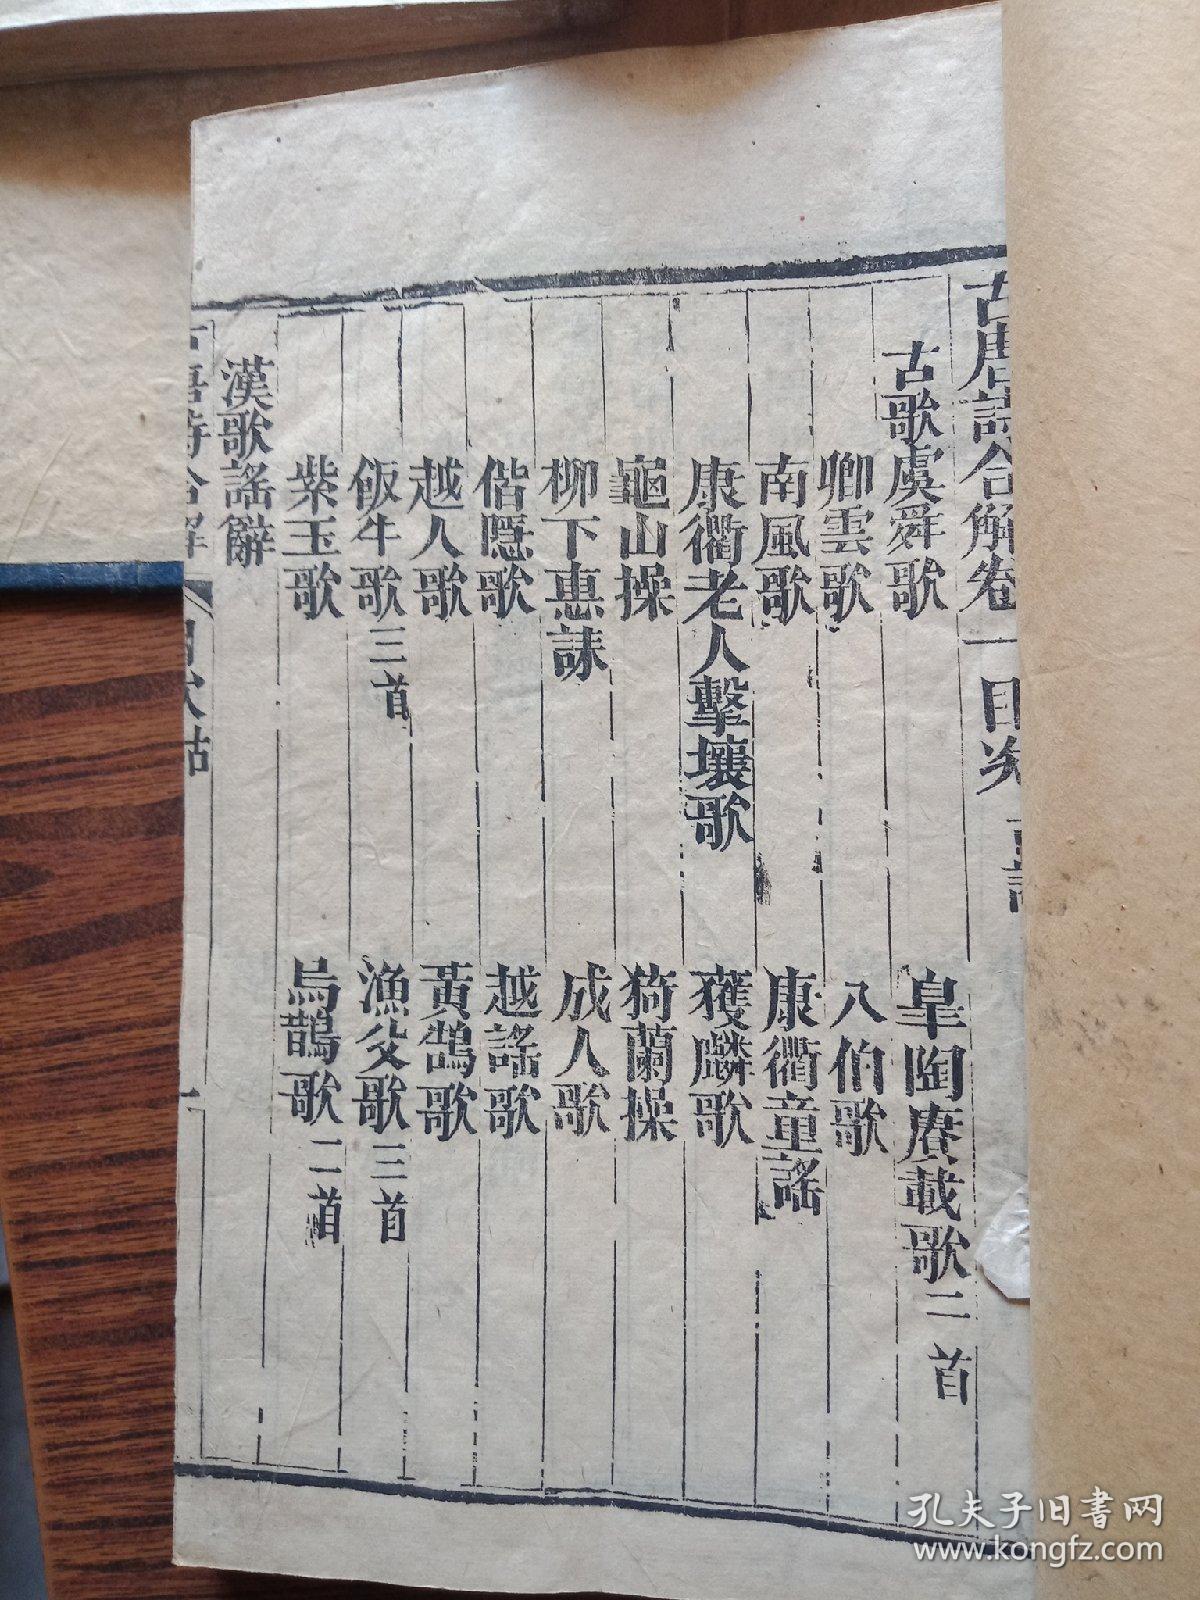 古唐詩合解卷一目次 古詩
古歌虞舜歌 皐陶賡載歌二首
卿雲歌 八伯歌
南風歌 康衢童謠
康衢老人擊壤歌 獲麟歌
龜山操 猗蘭操
柳下惠誄 成人歌
偕隱歌 越謠歌
越人歌 黃鵠歌
飯牛歌三首 漁父歌三首
紫玉歌 烏鵲歌二首
漢歌謠辭
古唐詩合解 目次 古 一
孔夫子旧书网
www.kongfz.com